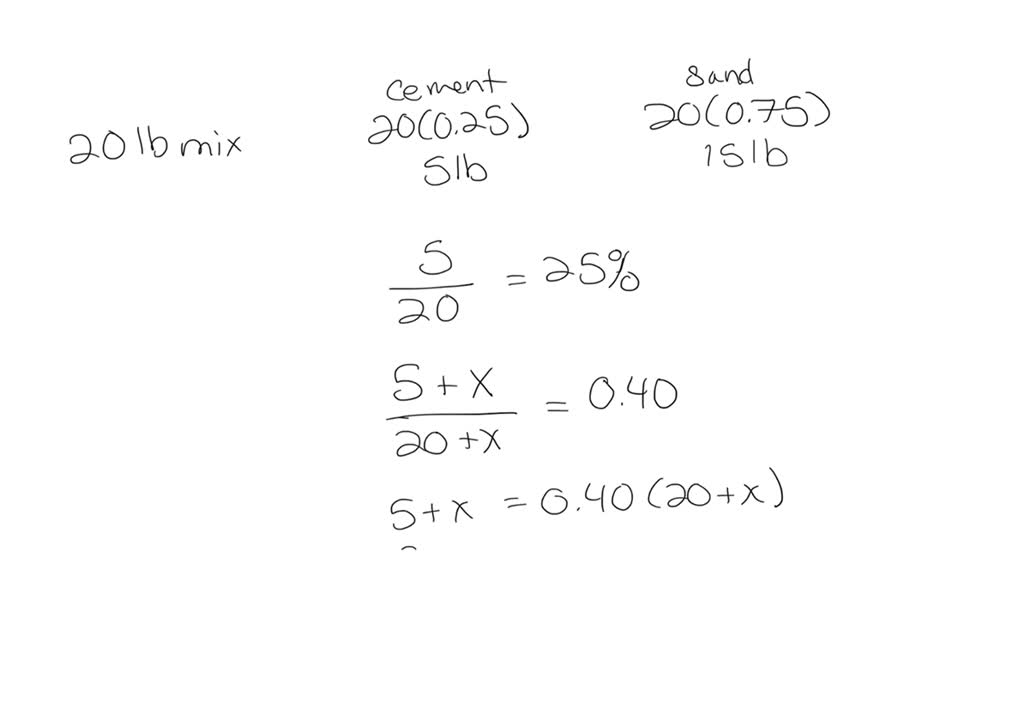 cement sand
20 lb mix 20(0.25) 20(0.75)
5 lb 15 lb
5
20 = 25%
5 + x
20 + x = 0.40
5 + x = 0.40 (20 + x)